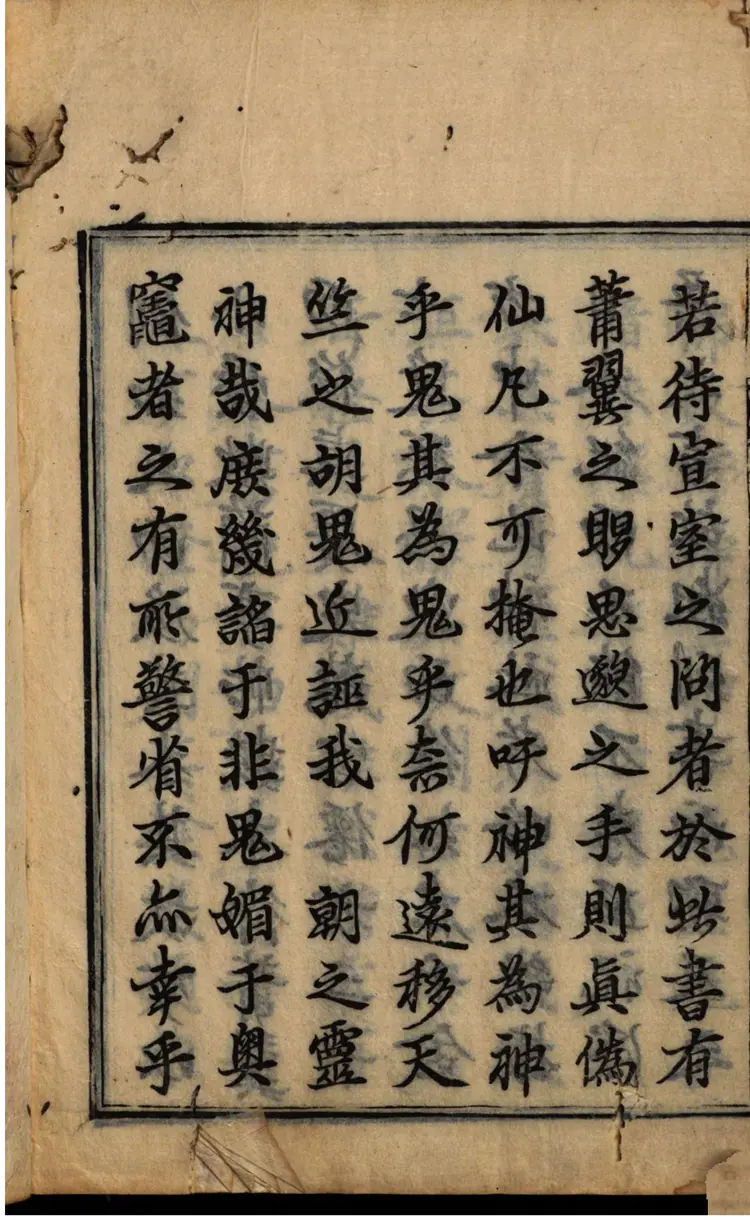 若待宣室之問者於此書有
蕭翼之賜思邈之手則眞僞
仙凡不可掩也吁神其為神
乎鬼其為鬼乎奈何遠移天
竺之胡鬼近誣我 朝之靈
神哉庻幾諂于非鬼媚于奥
竈者之有所警省不亦幸乎